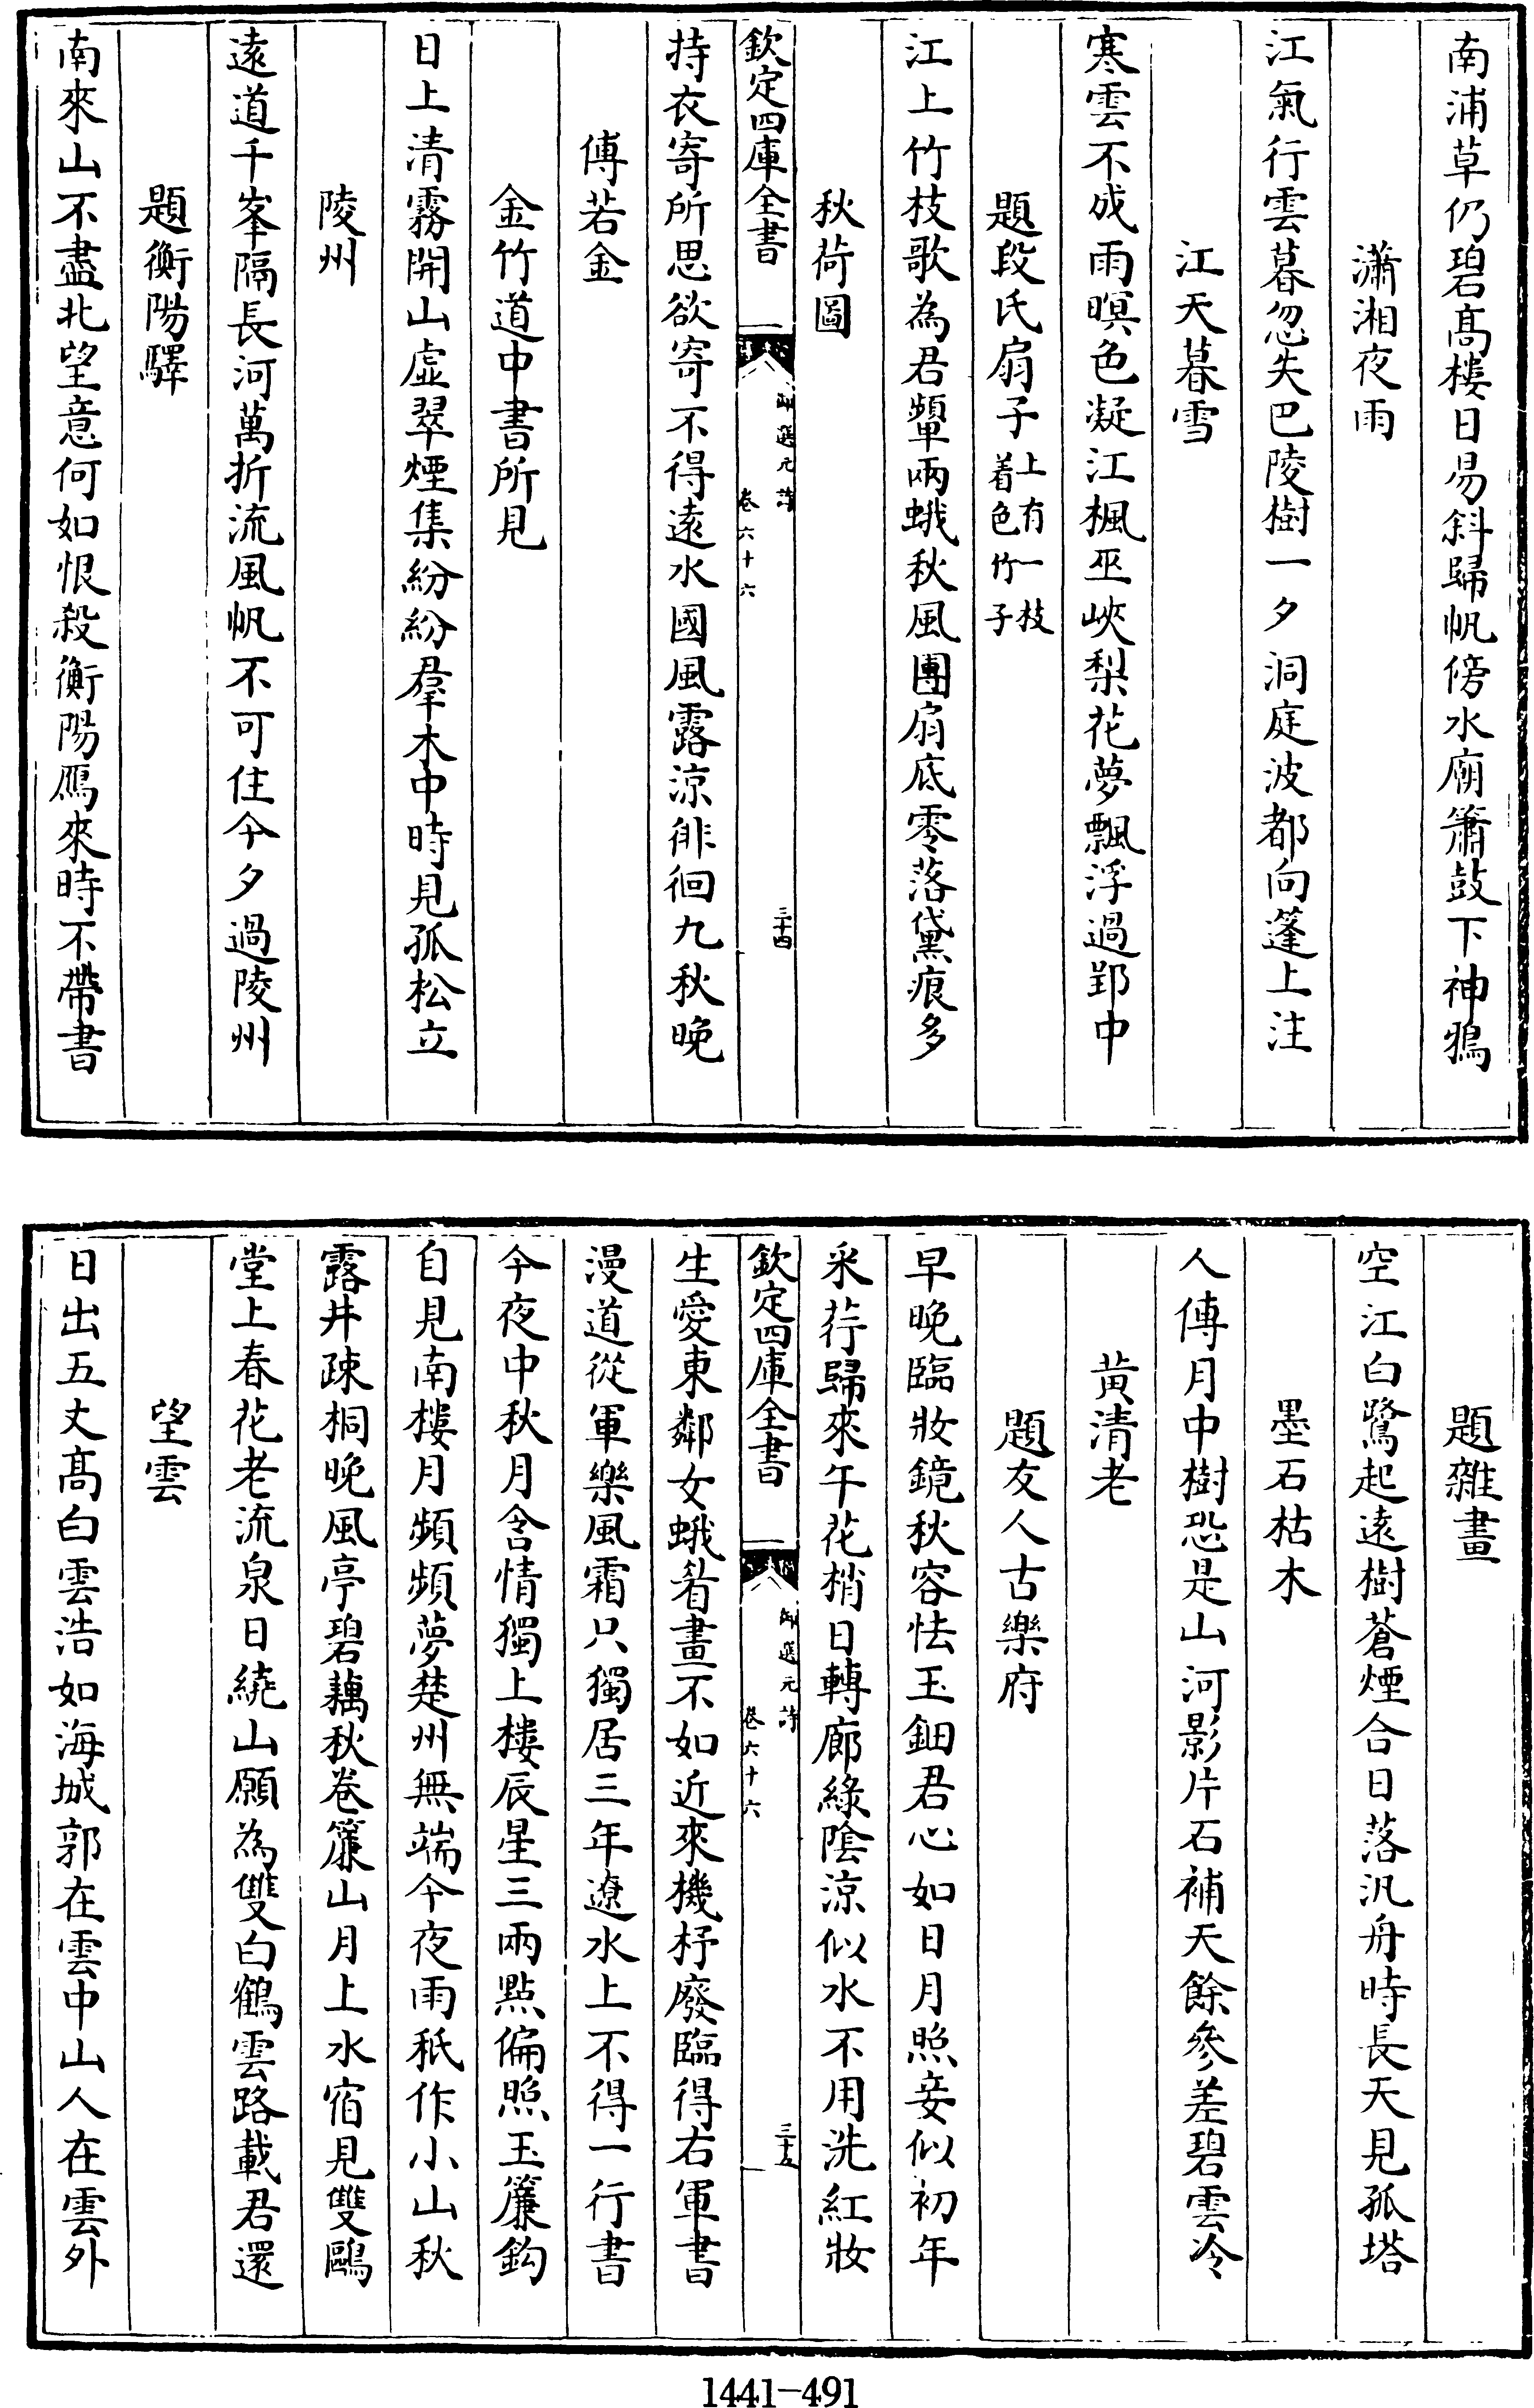 南浦草仍碧髙樓日易斜歸帆傍水廟簫鼓下神鴉
瀟湘夜雨
江氣行雲暮忽失巴陵樹一夕洞庭波都向蓬上注
江天暮雪
寒雲不成雨暝色凝江楓巫峽梨花夢飄浮過郢中
題段氏扇子上有一枝着色竹子
江上竹枝歌為君顰兩蛾秋風團扇底零落黛痕多
秋荷圖
欽定四庫全書
御選元詩
卷六十六
三十四
持衣寄所思欲寄不得遠水國風露涼徘徊九秋晚
傅若金
金竹道中書所見
日上清霧開山虛翠煙集紛紛羣木中時見孤松立
陵州
遠道千峯隔長河萬折流風帆不可住今夕過陵州
題衡陽驛
南來山不盡北望意何如恨殺衡陽鴈來時不帶書
題雜畫
空江白鷺起遠樹蒼煙合日落汎舟時長天見孤塔
墨石枯木
人傳月中樹恐是山河影片石補天餘參差碧雲冷
黃清老
題友人古樂府
早晚臨妝鏡秋容怯玉鈿君心如日月照妾似初年
采荇歸來午花梢日轉廊綠陰涼似水不用洗紅妝
欽定四庫全書
御選元詩
卷六十六
三十五
生愛東鄰女蛾眉畫不如近來機杼廢臨得右軍書
漫道從軍樂風霜只獨居三年遼水上不得一行書
今夜中秋月含情獨上樓辰星三兩點偏照玉簾鈎
自見南樓月頻頻夢楚州無端今夜雨秪作小山秋
露井疎桐晚風亭碧藕秋卷簾山月上水宿見雙鷗
堂上春花老流泉日繞山願為雙白鶴雲路載君還
望雲
日出五丈髙白雲浩如海城郭在雲中山人在雲外
1441-491